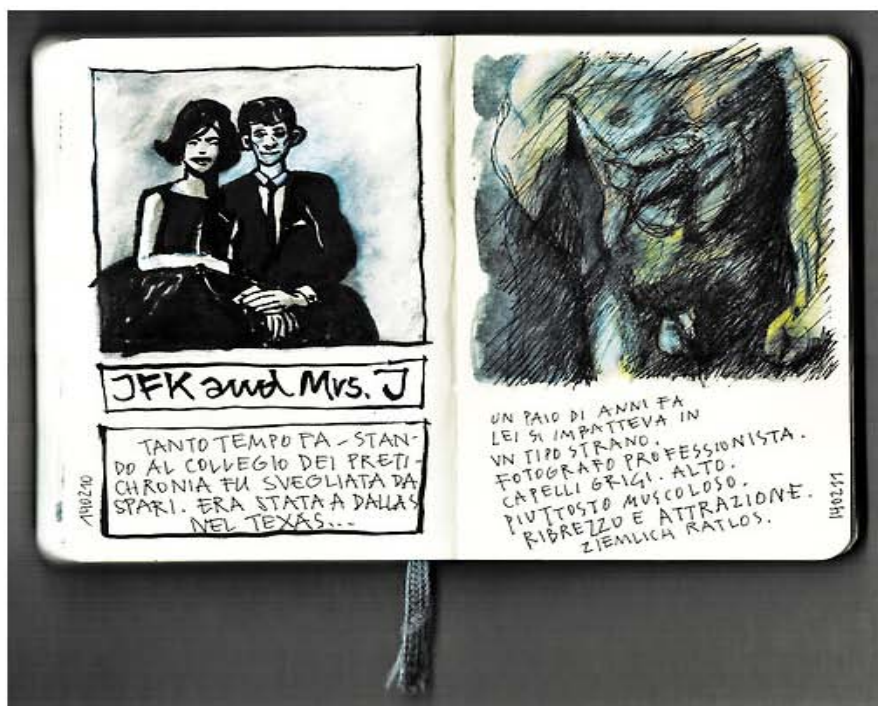 JFK and Mrs. J
TANTO TEMPO FA - STAN-
DO AL COLLEGIO DEI PRETI -
CHRONIA FU SVEGLIATA DA
SPARI. ERA STATA A DALLAS
NEL TEXAS...
140210
UN PAIO DI ANNI FA
LEI SI IMPATTEVA IN
UN TIPO STRANO.
FOTOGRAFO PROFESSIONISTA.
CAPELLI GRIGI. ALTO.
PIUTTOSTO MUSCOLOSO.
RIBREZZO E ATTRAZIONE.
ZIEMLICH RATLOS.
140211